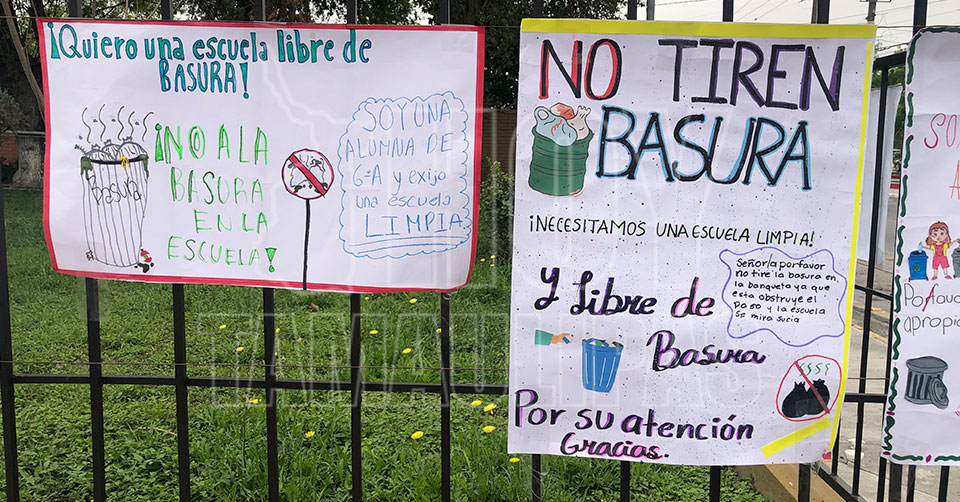 ¡Quiero una escuela libre de
BASURA!
Basura
¡NO A LA
BASURA
EN LA
ESCUELA!
SOY UNA
ALUMNA DE
6=A y exijo
una escuela
LIMPIA
NO TIREN
BASURA
¡NECESITAMOS UNA ESCUELA LIMPIA!
Señor/a porfavor
no tire la basura en
la banqueta ya que
esta obstruye el
Paso y la escuela
Se mira sucia
Y Libre de
Basura
Por su atención
Gracias.
apropia
TAMAULIPAS